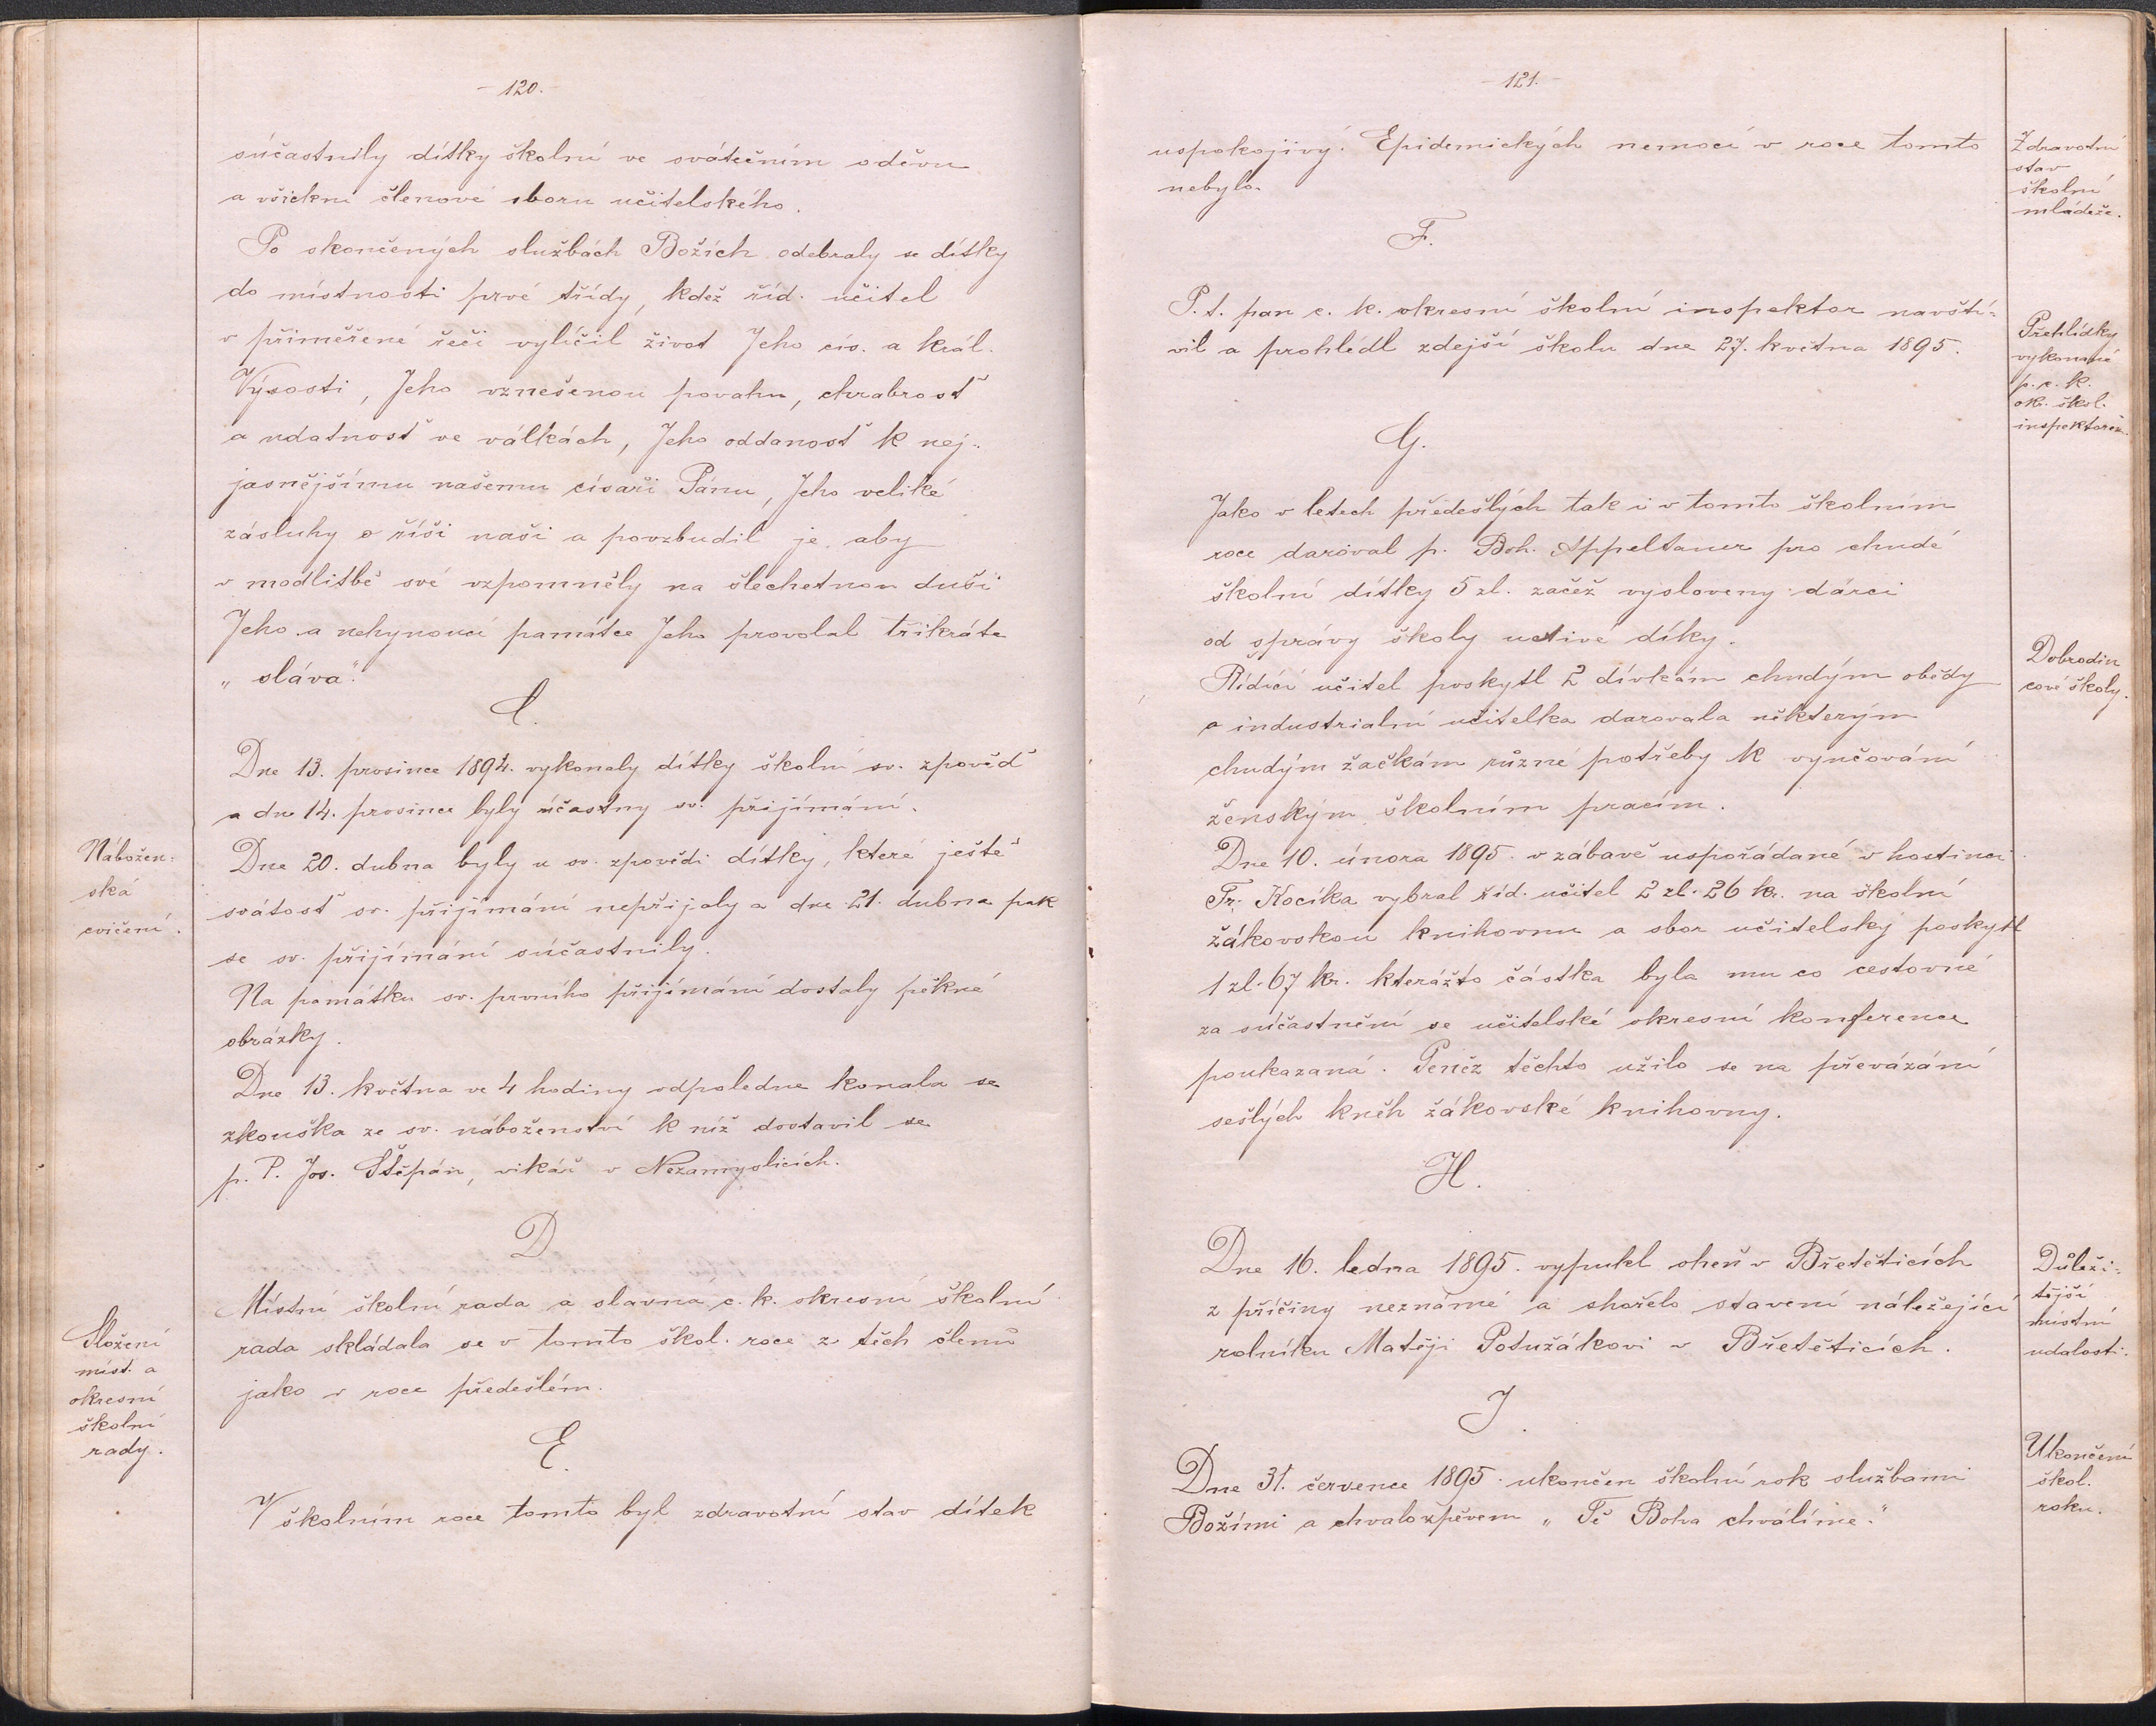 - 120. -
súčastnily dítky školní ve svátečním oděvu
a všickni členové sboru učitelského.
Po skončených službách Božích odebraly se dítky
do místnosti prvé třídy, kdež říd. učitel
v přiměřené řeči vylíčil život Jeho cís. a král.
Výsosti, Jeho vznešenou povahu, chrabrosť
a udatnosť ve válkách, Jeho oddanosť k nej-
jasnějšímu našemu císaři Pánu, Jeho veliké
zásluhy o říši naši a povzbudil je, aby
v modlitbě své vzpomněly na šlechetnou duši
Jeho a nehynoucí památce Jeho provolal třikráte
„sláva".
C.
Dne 13. prosince 1894. vykonaly dítky školní sv. zpověď
a dne 14. prosince byly účastny sv. přijímání.
Nábožen-
ská
cvičení.
Dne 20. dubna byly u sv. zpovědi dítky, které ještě
svátosť sv. přijímání nepřijaly a dne 21. dubna pak
se sv. přijímání súčastnily.
Na památku sv. prvního přijímání dostaly pěkné
obrázky.
Dne 13. května ve 4 hodiny odpoledne konala se
zkouška ze sv. náboženství k níž dostavil se
p. P. Jos. Štěpán, vikář v Nezamyslicích.
D
Složení
míst. a
okresní
školní
rady.
Místní školní rada a slavná c. k. okresní školní
rada skládala se v tomto škol. roce z těch členů
jako v roce předešlém.
E.
V školním roce tomto byl zdravotní stav dítek
- 121. -
uspokojivý. Epidemických nemocí v roce tomto
nebylo.
Zdravotní
stav
školní
mládeže.
F.
P. t. pan c. k. okresní školní inspektor navští-
vil a prohlédl zdejší školu dne 27. května 1895.
Přehlídky
vykonané
p. c. k.
ok. škol.
inspektorem.
G.
Jako v letech předešlých tak i v tomto školním
roce daroval p. Boh. Appeltauer pro chudé
školní dítky 5 zl. začež vysloveny dárci
od správy školy uctivé díky.
Řídící učitel poskytl 2 dívkám chudým obědy
a industrialní učitelka darovala některým
chudým žačkám různé potřeby k vyučování
ženským školním pracím.
Dobrodin
cové školy.
Dne 10. února 1895. v zábavě uspořádané v hostinci
Fr. Kocíka vybral říd. učitel 2 zl. 26 kr. na školní
žákovskou knihovnu a sbor učitelský poskytl
1 zl. 67 kr. kterážto částka byla mu co cestovné
za súčastnění se učitelské okresní konference
poukazaná. Peněz těchto užilo se na převázání
sešlých kněh žákovské knihovny.
H.
Dne 16. ledna 1895. vypukl oheň v Břetěticích
z příčiny neznámé a shořelo stavení náležející
rolníku Matěji Potužákovi v Břetěticích.
Důleži-
tější
místní
udalosti.
I.
Dne 31. července 1895. ukončen školní rok službami
Božími a chvalozpěvem „Tě Boha chválíme."
Ukončení
škol.
roku.